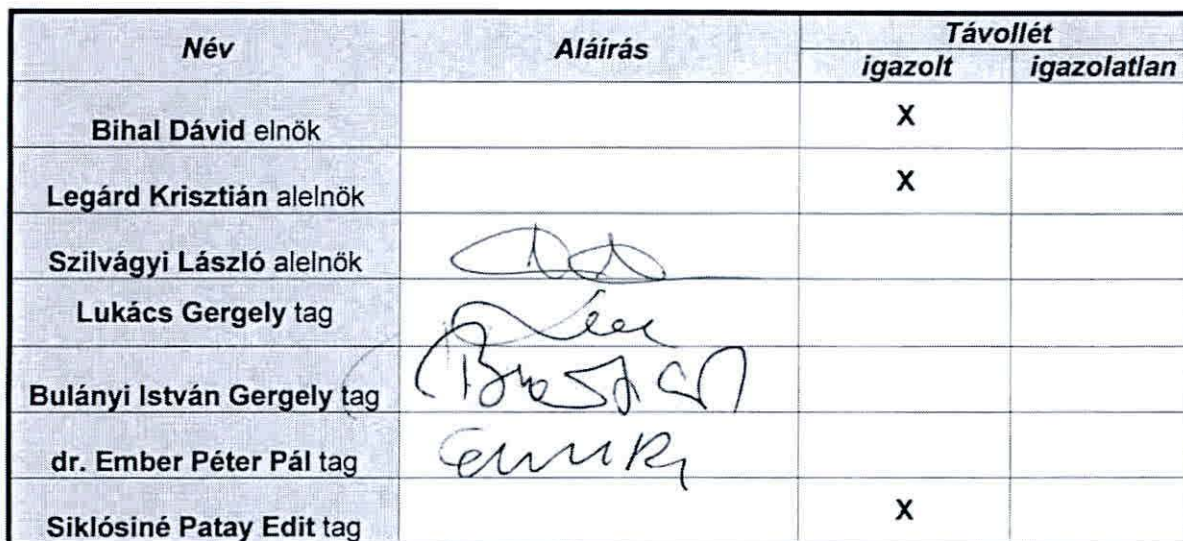 Név Aláírás Távollét
igazolt igazolatlan
Bihal Dávid elnök X
Legárd Krisztián alelnök X
Szilvágyi László alelnök
Lukács Gergely tag
Bulányi István Gergely tag
dr. Ember Péter Pál tag
Siklósiné Patay Edit tag X